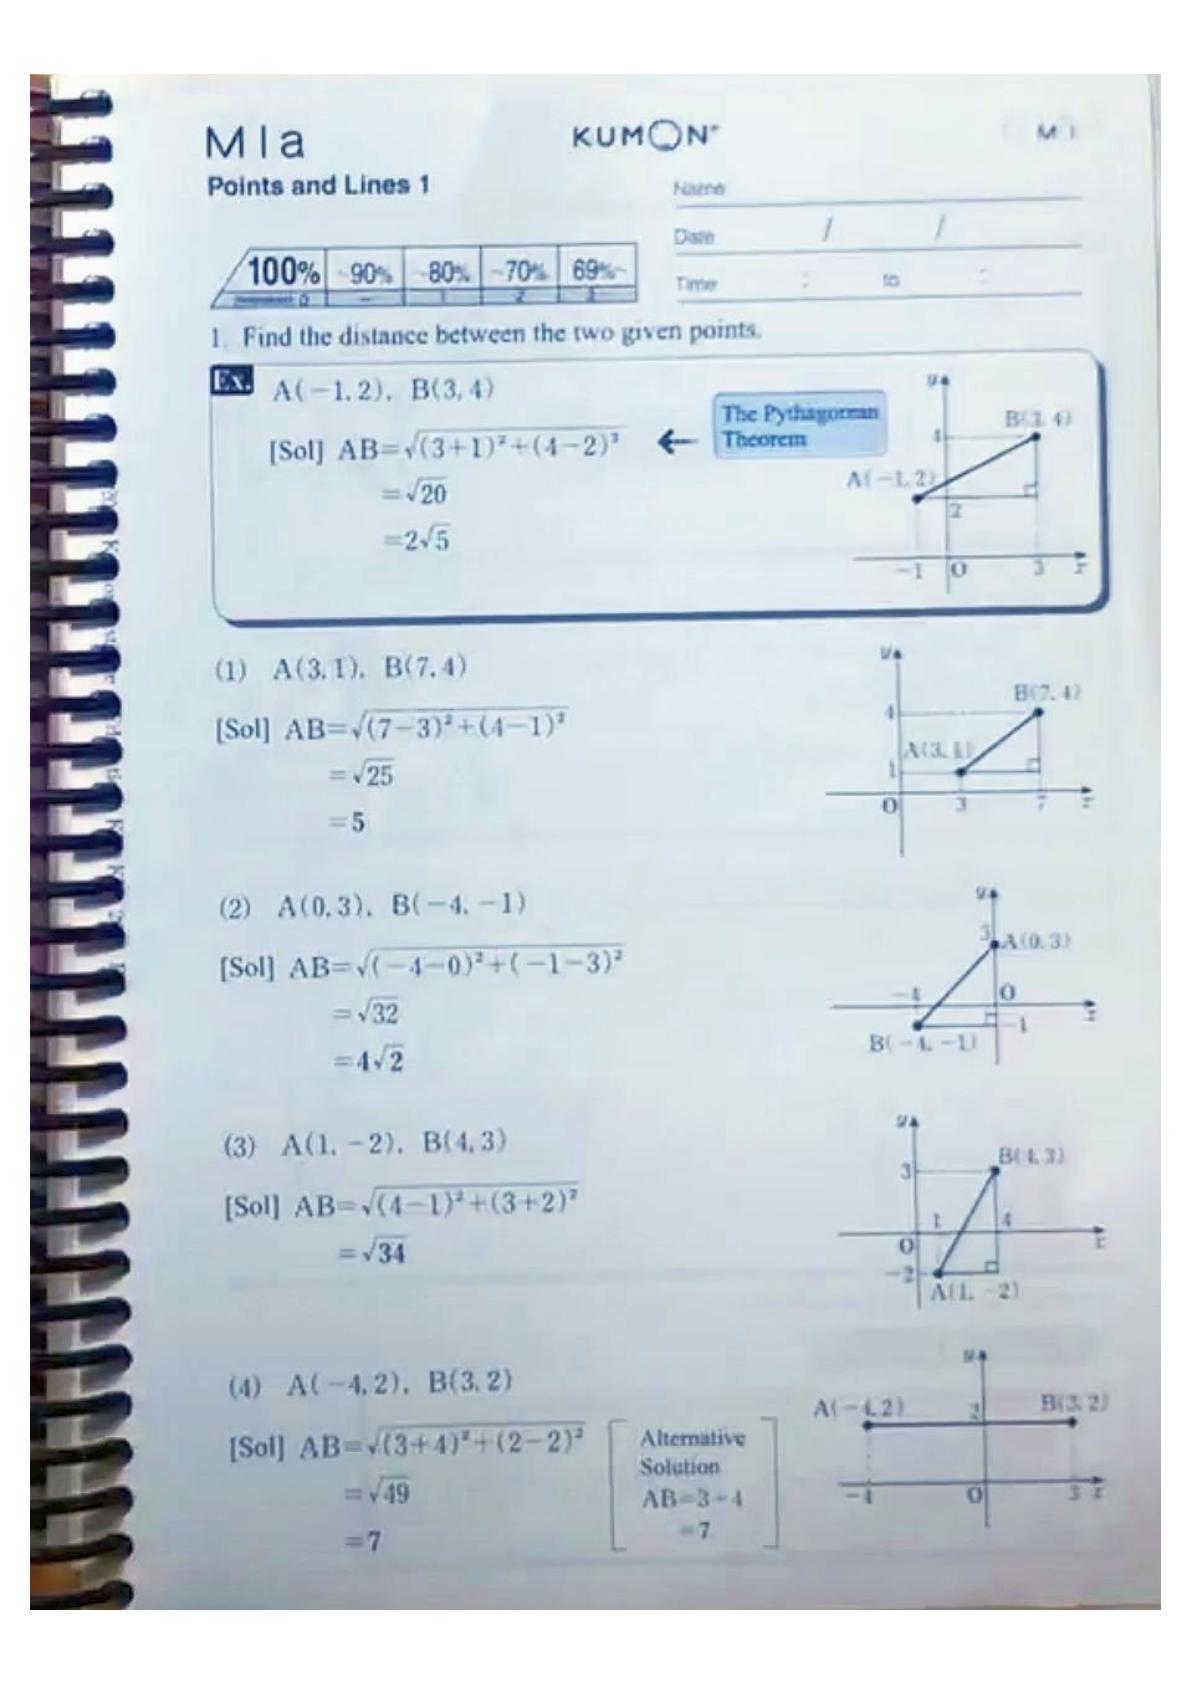 M1a
KUMON
M 1
Points and Lines 1
Name
Date / /
Time : to :
100% ~90% ~80% ~70% 69%~
0 – 1 2 3
1. Find the distance between the two given points.
Ex. A(−1, 2), B(3, 4)
[Sol] AB=√(3+1)²+(4−2)²
The Pythagorean
Theorem
=√20
=2√5
y
B(3, 4)
4
A(−1, 2)
2
−1 O 3 x
(1) A(3, 1), B(7, 4)
[Sol] AB=√(7−3)²+(4−1)²
=√25
=5
y
B(7, 4)
4
A(3, 1)
1
O 3 7 x
(2) A(0, 3), B(−4, −1)
[Sol] AB=√(−4−0)²+(−1−3)²
=√32
=4√2
y
3 A(0, 3)
−4 O
x
−1
B(−4, −1)
(3) A(1, −2), B(4, 3)
[Sol] AB=√(4−1)²+(3+2)²
=√34
y
B(4, 3)
3
1 4
O x
−2
A(1, −2)
(4) A(−4, 2), B(3, 2)
[Sol] AB=√(3+4)²+(2−2)²
=√49
=7
Alternative
Solution
AB=3+4
=7
y
A(−4, 2) 2 B(3, 2)
−4 O 3 x